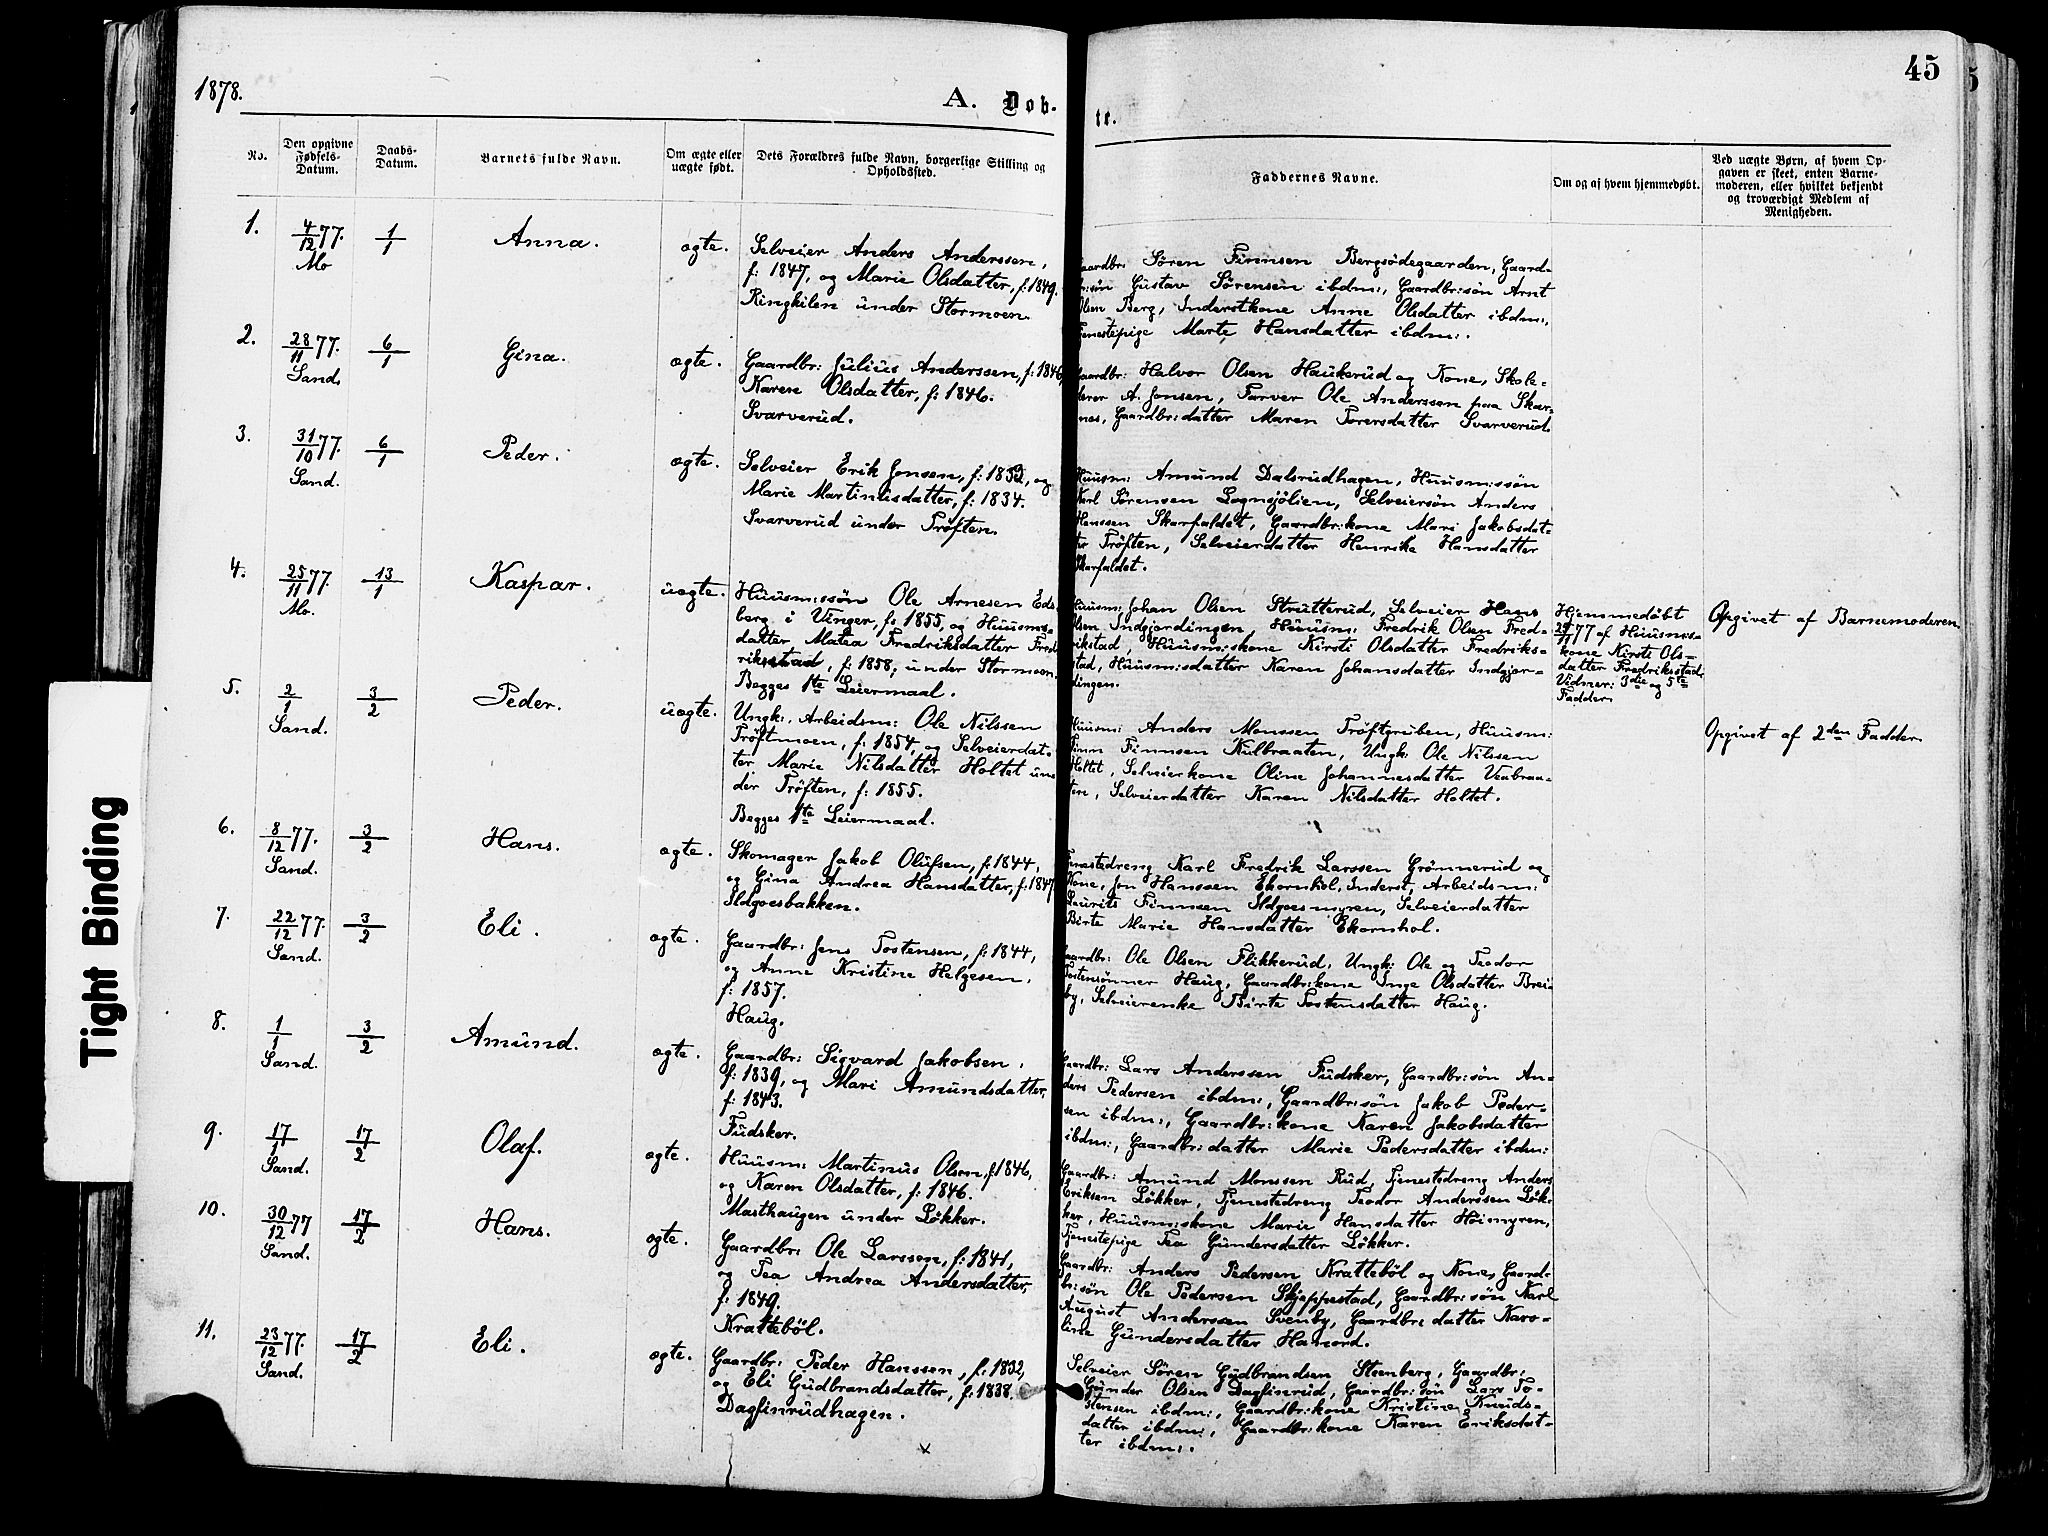 1878.
A. Døb-
te.
45
No.
Den opgivne
Fødsels-
Datum.
Daabs-
Datum.
Barnets fulde Navn.
Om ægte eller
uægte født.
Dets Forældres fulde Navn, borgerlige Stilling og
Opholdssted.
Faddernes Navne.
Om og af hvem hjemmedøbt.
Ved uægte Børn, af hvem Op-
gaven er skeet, enten Barne-
moderen, eller hvilket bekjendt
og troværdigt Medlem af
Menigheden.
1.
4/12 77.
Mo
1/1
Anna.
ægte.
Selveier Anders Anderssen,
f: 1847, og Marie Olsdatter, f: 1849.
Ringkilen under Stormoen.
Gaardbr: Søren Finnsen Bergsødegaarden, Gaard-
br:søn Gustav Sørensen ibdm:, Gaardbr:søn Arnt
Olsen Berg, Inderstkone Anne Olsdatter ibdm:,
Tjenestepige Marte Hansdatter ibdm:.
2.
28/11 77.
Sand.
6/1
Gina.
ægte.
Gaardbr: Julius Anderssen, f: 1846,
Karen Olsdatter, f: 1846.
Svarverud.
Gaardbr: Halvor Olsen Haukerud og Kone, Skole-
lærer A. Jonsen, Farver Ole Anderssen paa Skar-
nes, Gaardbr:datter Maren Torersdatter Svarverud.
3.
31/10 77.
Sand.
6/1
Peder.
ægte.
Selveier Erik Jonsen, f: 1832, og
Marie Martinusdatter, f: 1834.
Svarverud under Trøften.
Huusm: Amund Dalsrudhagen, Huusm:søn
Karl Sørensen Lognsjølien, Selveiersøn Anders
Hanssen Skarfaldet, Gaardbr:kone Mari Jakobsdat-
ter Trøften, Selveierdatter Henrike Hansdatter
Skarfaldet.
4.
25/11 77.
Mo.
13/1
Kaspar.
uægte.
Huusm:søn Ole Arnesen Eds-
berg i Vinger, f: 1855, og Huusms-
datter Matea Fredriksdatter Fred-
rikstad, f: 1858, under Stormoen.
Begges 1te Leiermaal.
Huusm: Johan Olsen Strutterud, Selveier Hans
Olsen Indgjordingen, Huusm: Fredrik Olsen Fred-
rikstad, Huusm:skone Kirsti Olsdatter Fredriks-
stad, Huusm:sdatter Karen Johansdatter Indgjor-
dingen.
Hjemmedøbt
28/11 77 af Huusms-
kone Kirsti Ols-
datter Fredriksstad.
Vidner: 3die og 5te
Fadder.
Opgivet af Barnemoderen.
5.
2/1
Sand.
3/2
Peder.
uægte.
Ungk: Arbeidsm: Ole Nilssen
Trøftmoen, f: 1854, og Selveierdat-
ter Marie Nilsdatter Holtet un-
der Trøften, f: 1855.
Begges 1te Leiermaal.
Huusm: Anders Monssen Trøftgruben, Huusm:
Finn Finnsen Kulbraaten, Ungk: Ole Nilssen
Holtet, Selveierkone Oline Johannesdatter Venbraa-
ten, Selveierdatter Karen Nilsdatter Holtet.
Opgivet af 2den Fadder
6.
8/12 77.
Sand.
3/2
Hans.
ægte.
Skomager Jakob Olufsen, f: 1844,
og Gina Andrea Hansdatter, f: 1847.
Ildgoesbakken.
Tjenestedreng Karl Fredrik Larssen Grønnerud og
Kone, Jon Hanssen Ekornhol, Inderst, Arbeidsm:
Laurits Finnsen Ildgoesmyren, Selveierdatter
Birte Marie Hansdatter Ekornhol.
7.
22/12 77.
Sand.
3/2
Eli.
ægte.
Gaardbr: Jens Tostensen, f: 1844,
og Anne Kristine Helgesen,
f: 1857.
Haug.
Gaardbr: Ole Olsen Flikkerud, Ungk: Ole og Teodor
Tostensønner Haug, Gaardbr:kone Inge Olsdatter Brei-
by, Selveierenke Birte Tostensdatter Haug.
8.
1/1
Sand.
3/2
Amund.
ægte.
Gaardbr: Sigvard Jakobsen,
f: 1839, og Mari Amundsdatter,
f: 1843.
Fudsker.
Gaardbr: Lars Anderssen Fudsker, Gaardbr:søn An-
ders Pedersen ibdm:, Gaardbr:søn Jakob Peder-
sen ibdm:, Gaardbr:kone Karen Jakobsdatter
ibdm:, Gaardbr:datter Marie Pedersdatter ibdm:
9.
17/1
Sand.
17/2
Olaf.
ægte.
Huusm: Martinus Olsen, f: 1846,
og Karen Olsdatter, f: 1846.
Masthaugen under Løkker.
Gaardbr: Amund Monssen Rud, Tjenestedreng Anders
Eriksen Løkker, Tjenestedreng Teodor Anderssen Løk-
ker, Huusm:skone Marie Hansdatter Høimyren,
Tjenestepige Tea Gundersdatter Løkker.
10.
30/12 77
Sand.
17/2
Hans.
ægte.
Gaardbr: Ole Larssen, f: 1841,
og Tea Andrea Andersdatter,
f: 1849.
Kratteböl.
Gaardbr: Anders Pedersen Kratteböl og Kone, Gaard-
br:søn Ole Pedersen Skjeppestad, Gaardbr:søn Karl
August Anderssen Svenby, Gaardbr:datter Karo-
line Gundersdatter Harnord.
11.
23/12 77.
Sand.
17/2
Eli.
ægte.
Gaardbr: Peder Hanssen, f: 1832,
og Eli Gudbrandsdatter, f: 1838.
Dagfinrudhagen.
Selveier Søren Gudbrandsen Stenberg, Gaardbr:
Gunder Olsen Dagfinrud, Gaardbr:søn Lars To-
stensen ibdm:, Gaardbr:kone Kristine Knuds-
datter ibdm:, Gaardbr:kone Karen Eriksdat-
ter ibdm:.
Tight Binding